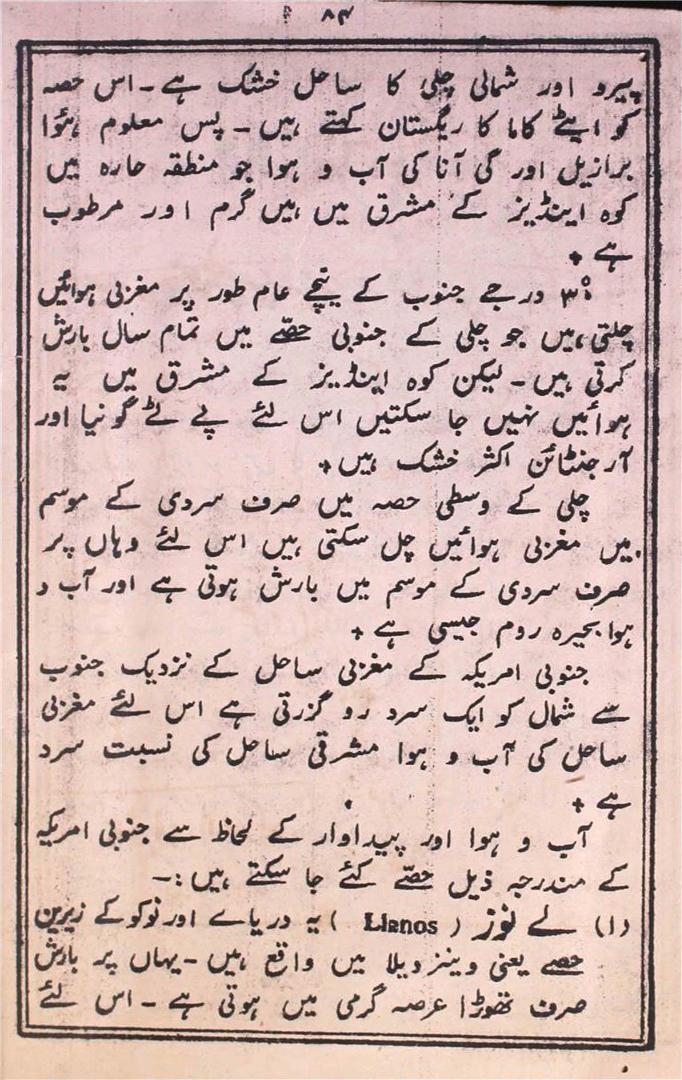 ۸۴
پیرو اور شمالی چلی کا ساحل خشک ہے۔ اس حصہ
کو ایٹے کاما کا ریگستان کہتے ہیں۔ پس معلوم ہؤا
برازیل اور گی آنا کی آب و ہوا جو منطقہ حارہ میں
کوہ اینڈیز کے مشرق میں ہیں گرم اور مرطوب
ہے +
۳۰ درجے جنوب کے نیچے عام طور پر مغربی ہوائیں
چلتی ہیں جو چلی کے جنوبی حصّے میں تمام سال بارش
کرتی ہیں۔ لیکن کوہ اینڈیز کے مشرق میں یہ
ہوائیں نہیں جا سکتیں اس لئے پے ٹے گونیا اور
آرجنٹائن اکثر خشک ہیں +
چلی کے وسطی حصہ میں صرف سردی کے موسم
میں مغربی ہوائیں چل سکتی ہیں اس لئے وہاں پر
صرف سردی کے موسم میں بارش ہوتی ہے اور آب و
ہوا بحیرہ روم جیسی ہے +
جنوبی امریکہ کے مغربی ساحل کے نزدیک جنوب
سے شمال کو ایک سرد رو گزرتی ہے اس لئے مغربی
ساحل کی آب و ہوا مشرقی ساحل کی نسبت سرد
ہے +
آب و ہوا اور پیداوار کے لحاظ سے جنوبی امریکہ
کے مندرجہ ذیل حصّے کئے جا سکتے ہیں:۔
(۱) لے نوز ( Llanos ) یہ دریاے اورنوکو کے زیرین
حصے یعنی وینزویلا میں واقع ہیں۔ یہاں پر بارش
صرف تھوڑا عرصہ گرمی میں ہوتی ہے۔ اس لئے